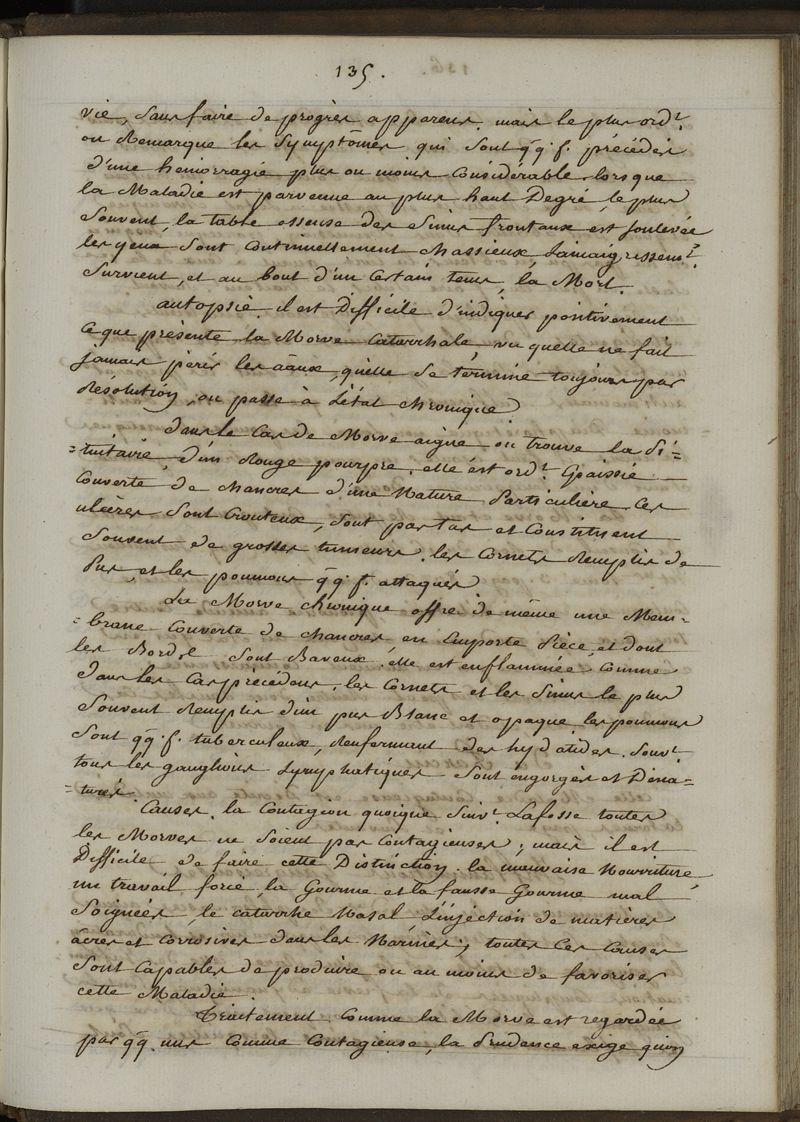 135.
vie, sans faire de progrès apparens. mais le plus ord.t
on Remarque les Symptômes qui sont qq. f. précédés
d'une hémorragie plus ou moins Considérable. lorsque
la Maladie est parvenue au plus haut Degré, le plus
souvent, la table osseuse des Sinus frontaux est soulevée
les yeux sont Continuellement chassieux, l'amaigrissem.t
survient, et au bout d'un Certain tems, la Mort.
autopsie. il est Difficile d'indiquer positivement
Ce que présente la Morve Catarrhale, vu quelle ne fait
jamais périr les aãux, qu'elle se termine toujours par
Résolution, ou passe à l'état chronique.
dans le Cas de Morve aigue on trouve la Pi=
=tuitaire d'un Rouge pourpre. elle est ord.t Epaissie
Couverte de chancres d'une Nature Particulière. Ces
ulcères sont Crouteux, sont par tas et Constituent
Souvent de grosses tumeurs. les Cornets Remplis de
Pus, et les poumons qq. f. attaqués
La Morve chronique offre de même une Mem=
=brane Couverte de chancres en Emporte Pièce, et dont
les Bords sont Baveux. elle est enflammée Comme
dans les Cas précédens. les Cornets et les Sinus le plus
Souvent Remplis d'un pus Blanc et opaque, les poumons
Sont qq. f. tuberculeux, Renfermant des hydatides. Souv.t
tous les ganglions Lymphatiques sont engorgés et Déna=
=turés.
Causes. la Contagion quoique Suiv.t Lafosse toutes
les Morves ne soient pas Contagieuses; mais il est
Difficile de faire cette Distinction. la mauvaise Nourriture,
un travail forcé, la Gourme et la fausse Gourme mal
Soignées, le catarrhe Nasal, L'injection de matières
âcres et Corrosives dans les Narines; toutes Ces Causes
sont Capables de produire ou au moins de favoriser
cette Maladie.
Traitement. Comme la Morve est regardée
par qq. uns Comme Contagieuse, la Prudence exige qu'on